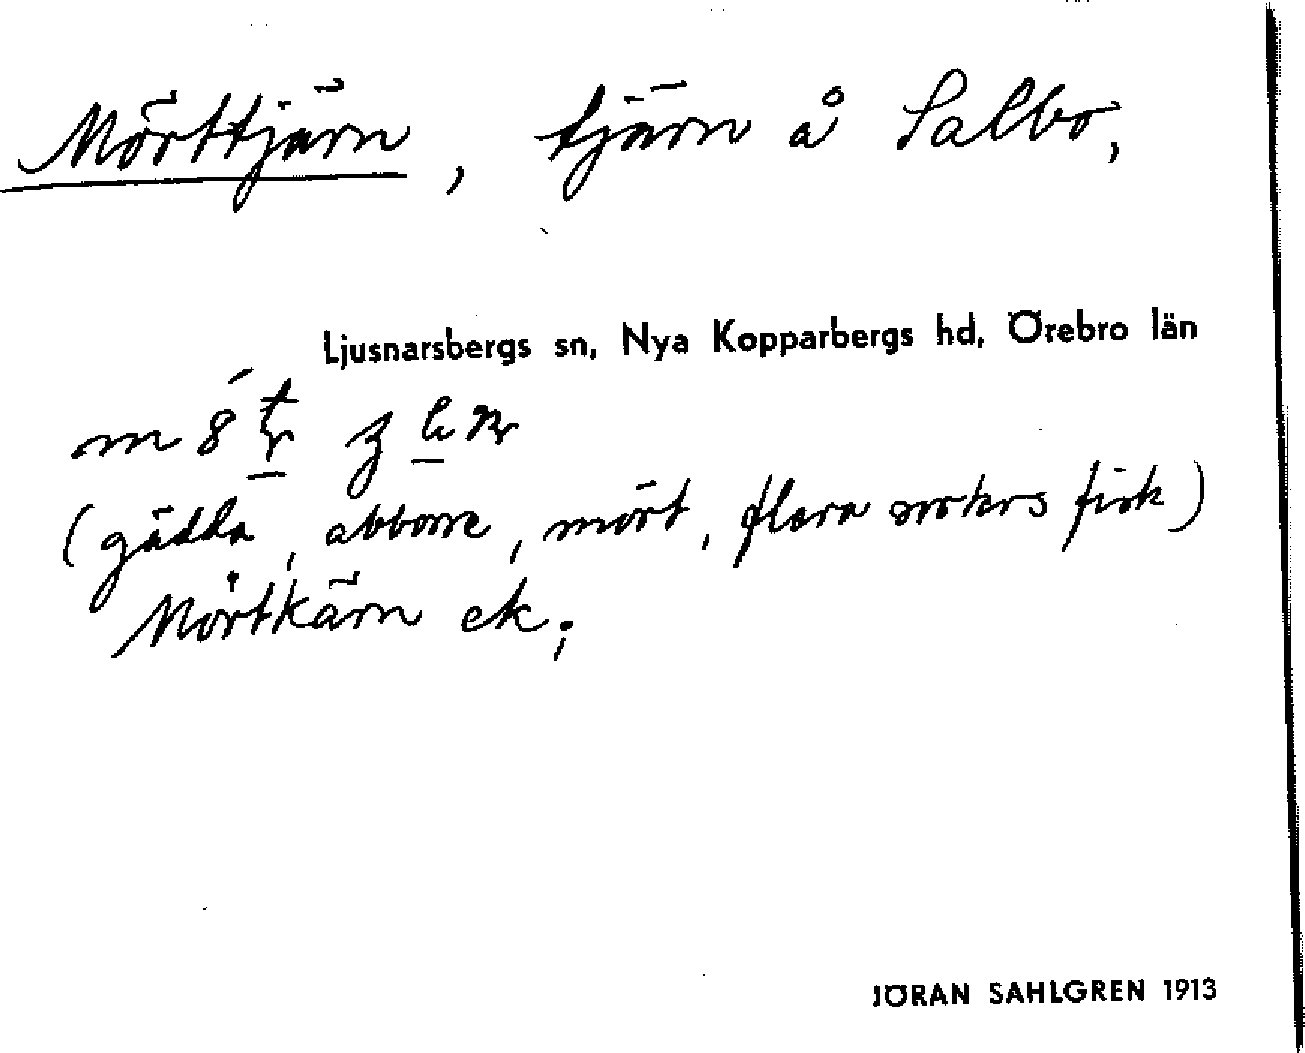 Mörttjärn, tjärn å Salbo,
Ljusnarsbergs sn, Nya Kopparbergs hd, Örebro län
(gädda, abborre, mört, flera sorters fisk)
Mörtkärn ek;
JÖRAN SAHLGREN 1913